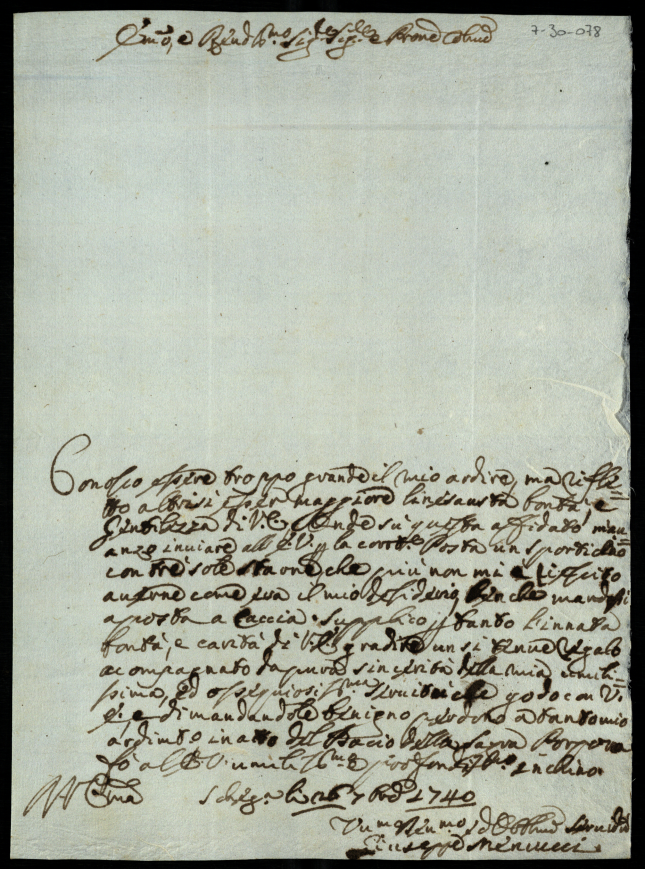 7-30-078
Emo, e Rendmo Sigre Sigre e Prone Colmo
Conosco essere troppo grande il mio ardire, ma rifle=
tto altresi esser maggiore l'inesausta bontà, e
Gentilezza di V.E. Onde su questa affidato mau
anzo inviare all'E.V. p la corrte Posta un sportichio
con tre sole starne, che piu non mi è riuscito
auerne come era il mio desiderio, benche mandassi
aposta a Caccia. Supplico p tanto l'innata
bontà, e carità di V.E. gradire un si tenue regalo
acompagnato da pura sincerità della mia umili=
ssima, ed ossequiosissma Seruitù che godo con V.
E., e dimandandole benigno perdono a tanto mio
ardimto in atto del Bacio della Sagra Porpora
fò all'E.V. umilissma e profondissma inchino.
V. Ema li 26 7bre 1740
Vmo Deumo, ed Obblmo Seruid
Giuseppe Menucci